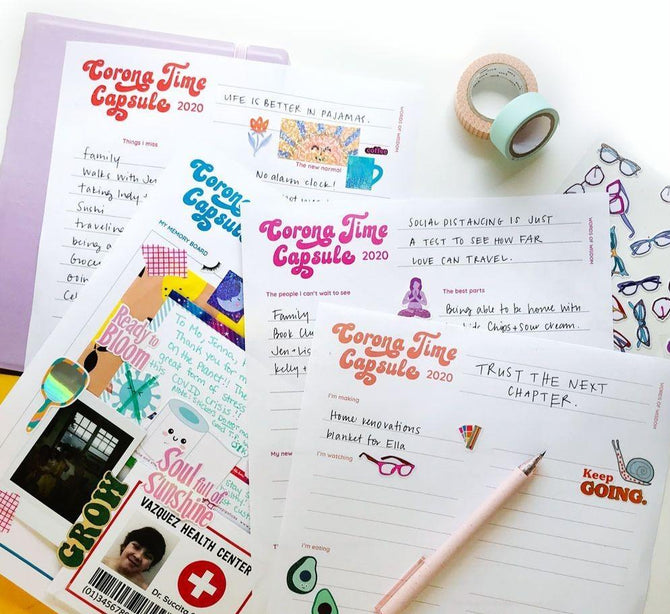 Corona Time
Capsule 2020
LIFE IS BETTER IN PAJAMAS.
WORDS OF WISDOM
Things I miss
family
walks with Jen
taking Indy t
Sushi
traveling
being a
Groce
goin
Ce
coffee
The new normal
No alarm clock!
Coron
Capsul
MY MEMORY BOARD
Ready to
Bloom
To Me, Jenna,
Thank you for m
on the Planet!!
great form of stress
COVID crisis!
Soul full of
Sunshine
GROW
VAZQUEZ HEALTH CENTER
Dr. Succito
(01)3456789
Corona Time
Capsule 2020
SOCIAL DISTANCING IS JUST
A TEST TO SEE HOW FAR
LOVE CAN TRAVEL.
WORDS OF WISDOM
The people I can't wait to see
Family
Book Clu
Jen + Lis
kelly +
My new
The best parts
Being able to be home with
Chips + sour cream.
Corona Time
Capsule 2020
TRUST THE NEXT
CHAPTER.
WORDS OF WISDOM
I'm making
Home renovations
blanket for Ella
I'm watching
Keep
GOING.
I'm eating